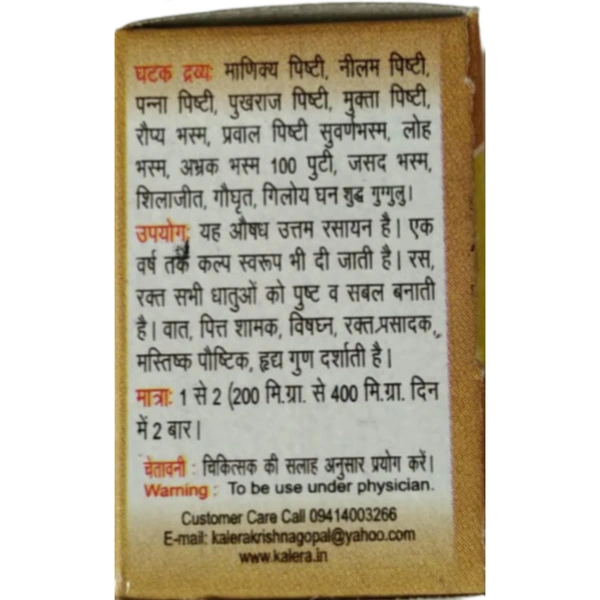 घटक द्रव्यः माणिक्य पिष्टी, नीलम पिष्टी,
पन्ना पिष्टी, पुखराज पिष्टी, मुक्ता पिष्टी,
रौप्य भस्म, प्रवाल पिष्टी सुवर्णभस्म, लोह
भस्म, अभ्रक भस्म 100 पुटी, जसद भस्म,
शिलाजीत, गौघृत, गिलोय घन शुद्ध गुग्गुलु।
उपयोगः यह औषध उत्तम रसायन है। एक
वर्ष तक कल्प स्वरूप भी दी जाती है। रस,
रक्त सभी धातुओं को पुष्ट व सबल बनाती
है। वात, पित्त शामक, विषघ्न, रक्त प्रसादक,
मस्तिष्क पौष्टिक, हृद्य गुण दर्शाती है।
मात्राः 1 से 2 (200 मि.ग्रा. से 400 मि.ग्रा. दिन
में 2 बार।
चेतावनी : चिकित्सक की सलाह अनुसार प्रयोग करें।
Warning : To be use under physician.
Customer Care Call 09414003266
E-mail: kalerakrishnagopal@yahoo.com
www.kalera.in